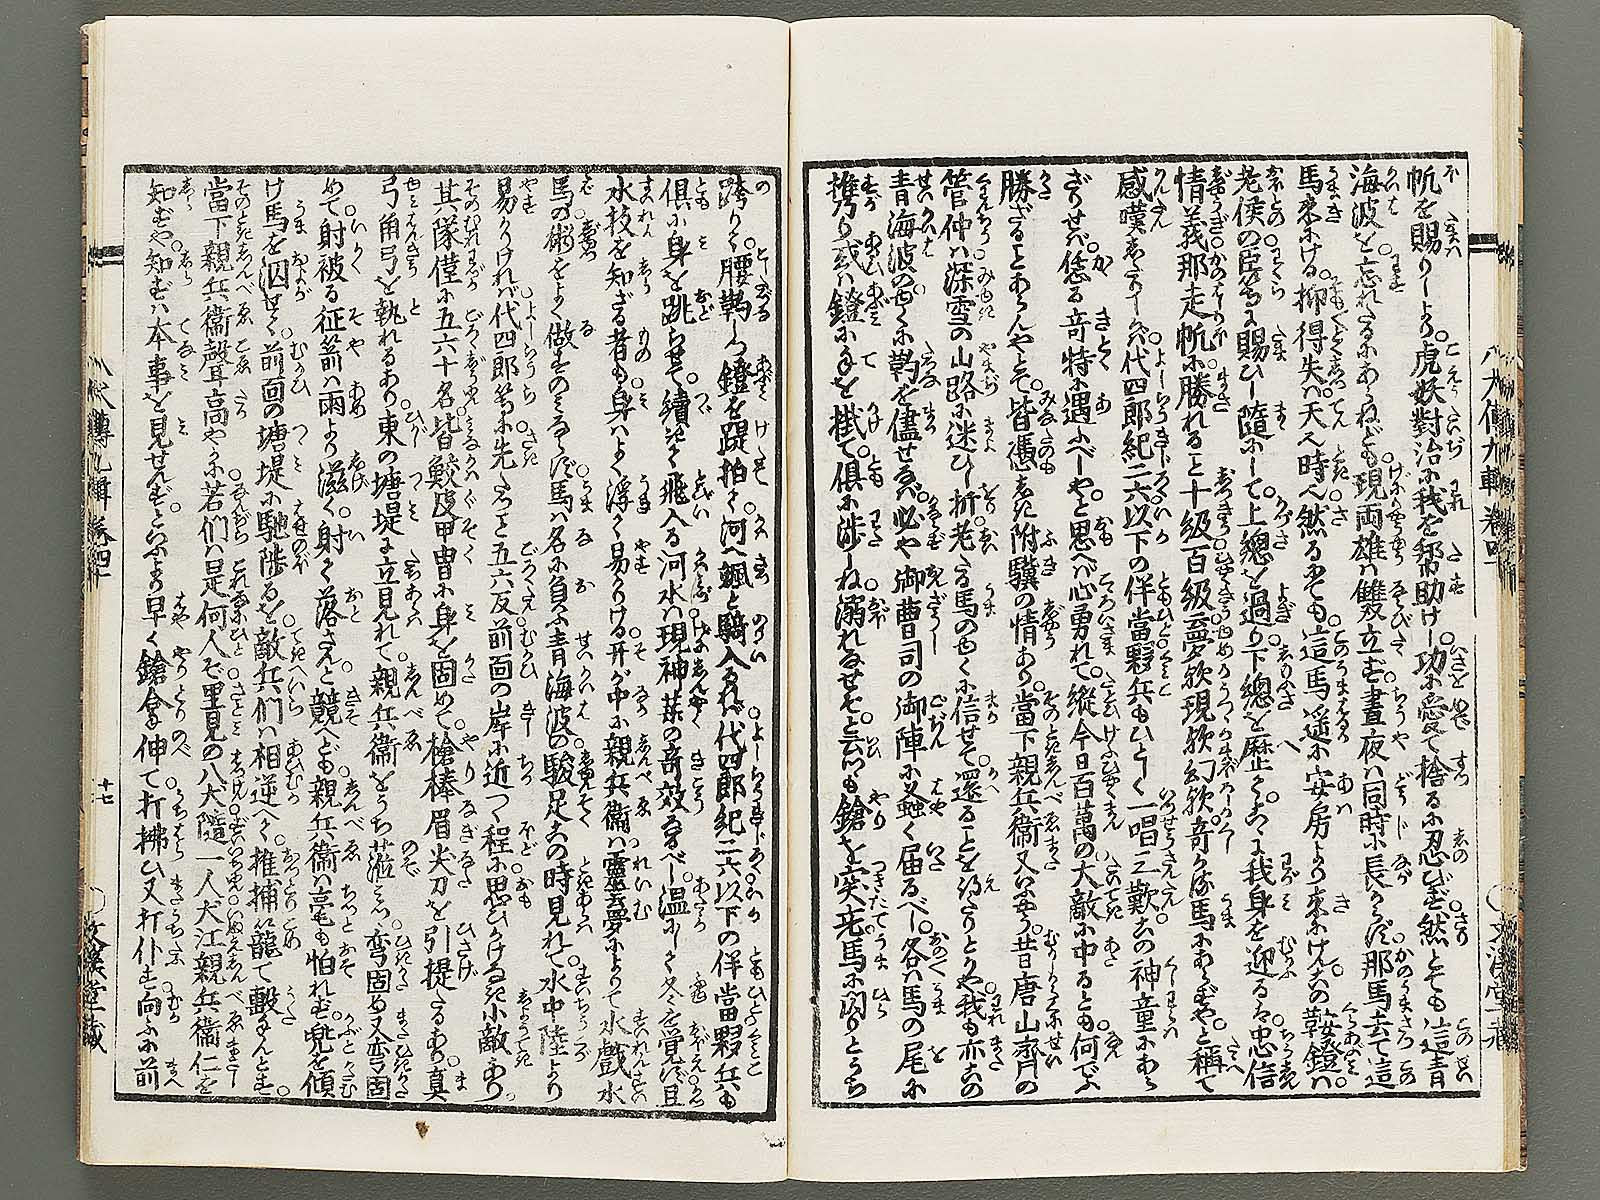 帆を賜りしより。虎妖對治に我を幇助けし。功に愛て捨るに忍びず。然とても這青
海波を忘れたるにあらねども。現両雄は雙立ず。晝夜は同時に長からず。那馬去て這
馬來にける。抑得失は天也時也。然るにても。這馬遥に安房より來にけん。この鞍鐙は
老侯の臣等に賜ひし隨にして。上總を過り下總を歴て。こゝに我身を迎る。忠信
情義那走帆に勝れること十級百級。夢欤現欤幻欤。奇なる馬にあらずや。と稱て
感嘆したりしかば。代四郎紀二六以下の伴當夥兵もひとしく一唱三歎。この神童にあら
ざりせば。恁る奇特に遇ふべしや。と思へば心勇れて。縦今日百萬の大敵に中るとも。何でふ
勝ざることあらんやとて。皆憑しき附驥の情あり。當下親兵衞又いふやう。昔唐山齊の
管仲は。深雪の山路に迷ひし折。老たる馬のゆくに信せて。還ることを得たりとかや。我も亦この
青海波のゆくに鞆を儘せなば。必や御曹司の御陣に蝨く届るべし。各は馬の尾に
携り。或は鐙に手を掛て。倶に渉しね。溺れなせそ。と云つゝも鎗を突立馬に閃りとうち
跨りて。腰鞆しつ。鐙を踶拍て。河へ颯と騎入るれば。代四郎紀二六以下の伴當夥兵も
倶に身を跳らせて。續きて飛入る河水は。現神業の奇效なるべし。温にして冬を覺ず。且
水技を知ざる者も。身はよく浮て易かりける。开が中に親兵衞は。靈夢によりて水戲水
馬の術をよく做すのみならず。馬は名に負ふ青海波の。駿足この時見れて。水中陸より
易かりければ。代四郎等に先たつこと五六反。前面の岸に近つく程に。思ひがけなき小敵あり。
其隊僅に五六十名。皆鮫皮甲冑に身を固めて。槍棒眉尖刀を引提たるあり。真
弓角弓を執れるあり。東の塘堤に立見れて。親兵衞をうち𦲷み。弯固め又弯固
めて。射被る征箭は雨より滋く。射て落さんと競へども。親兵衞は毫も怕れず。兜を傾
け馬を泅せて。前面の塘堤に馳陟るを。敵兵們は相逆へて。推捕籠て轂んとす。
當下親兵衞聲高やかに。若們は是何人ぞ。里見の八犬隨一人。犬江親兵衞仁を
知ずや。知ずは本事を見せんず。といふより早く。鎗合伸て打拂ひ。又打仆す。向ふに前
八犬傳九輯 卷四
十七
文溪堂藏